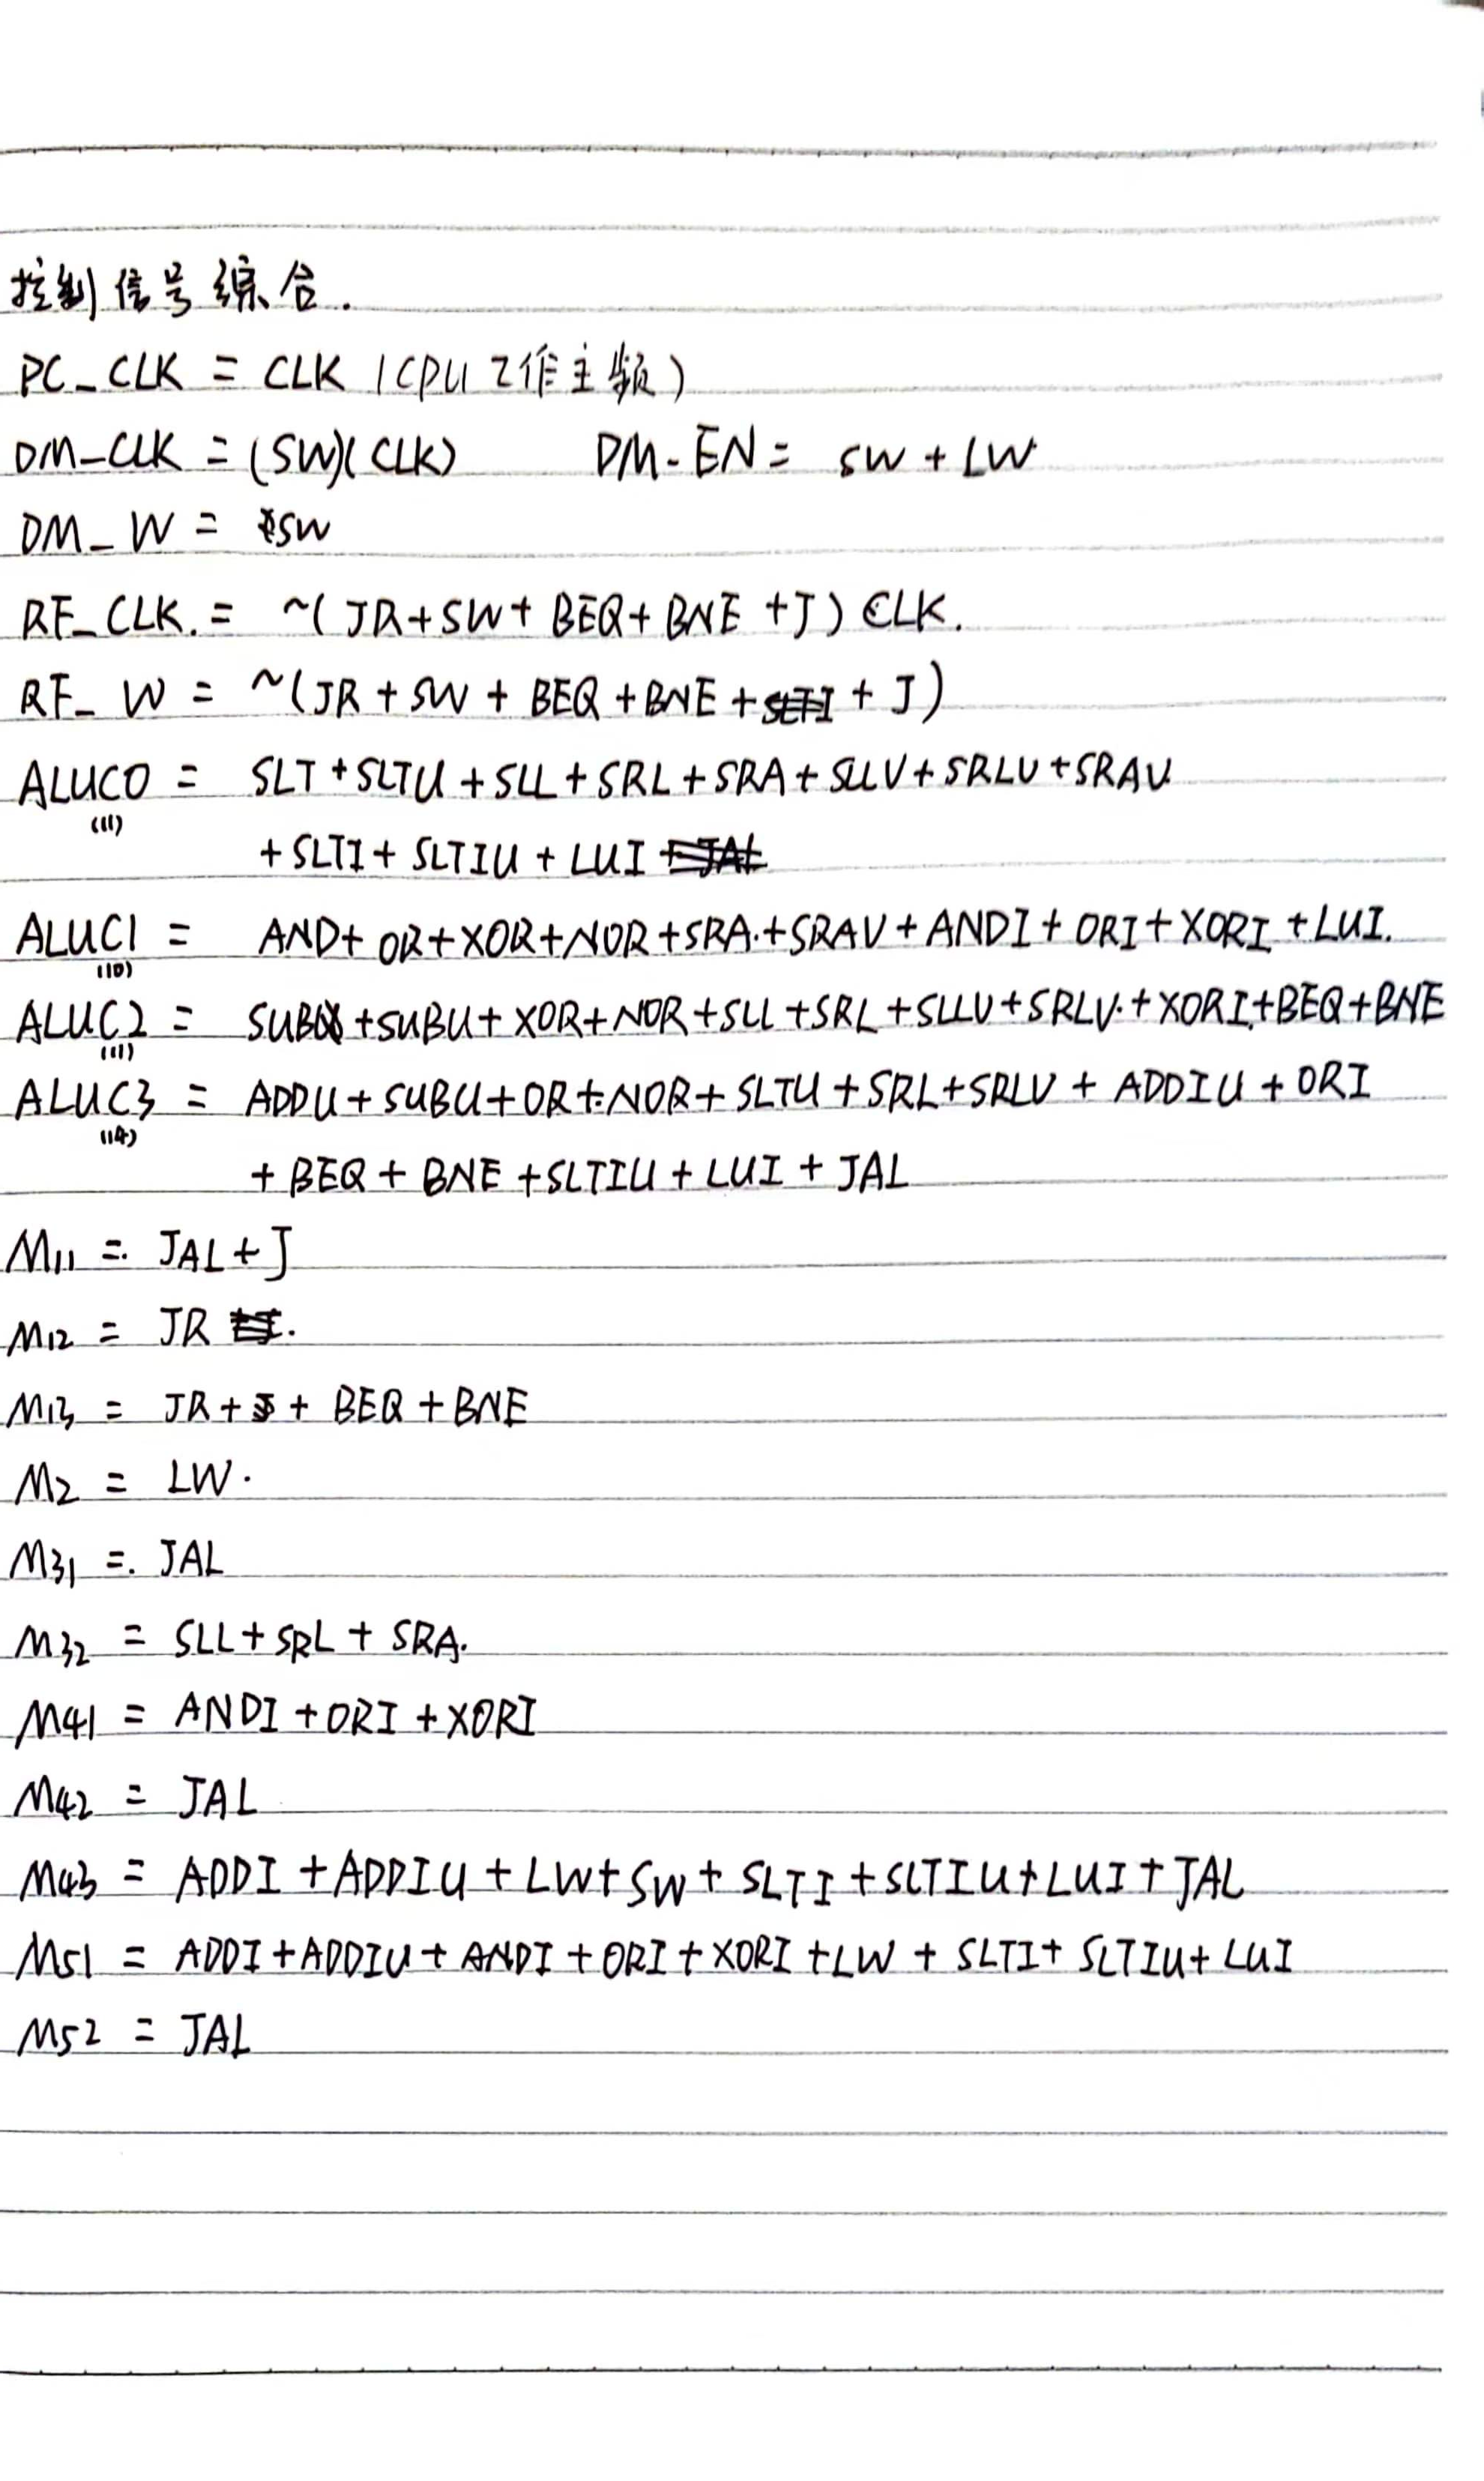 控制信号综合.
PC_CLK = CLK (CPU工作主频)
DM_CLK = (SW)(CLK) DM_EN = SW + LW
DM_W = SW
RF_CLK. = ~(JR+SW+BEQ+BNE+J) CLK.
RF_W = ~(JR+SW+BEQ+BNE+ +J)
ALUC0 = SLT+SLTU+SLL+SRL+SRA+SLLV+SRLV+SRAV
(11)
+SLTI+SLTIU+LUI
ALUC1 = AND+OR+XOR+NOR+SRA.+SRAV+ANDI+ORI+XORI+LUI.
(10)
ALUC2 = SUB+SUBU+XOR+NOR+SLL+SRL+SLLV+SRLV.+XORI+BEQ+BNE
(11)
ALUC3 = ADDU+SUBU+OR+NOR+SLTU+SRL+SRLV+ADDIU+ORI
(14)
+BEQ+BNE+SLTIU+LUI+JAL
M11 = JAL+J
M12 = JR .
M13 = JR+J+BEQ+BNE
M2 = LW.
M31 =. JAL
M32 = SLL+SRL+SRA.
M41 = ANDI+ORI+XORI
M42 = JAL
M43 = ADDI+ADDIU+LW+SW+SLTI+SLTIU+LUI+JAL
M51 = ADDI+ADDIU+ANDI+ORI+XORI+LW+SLTI+SLTIU+LUI
M52 = JAL